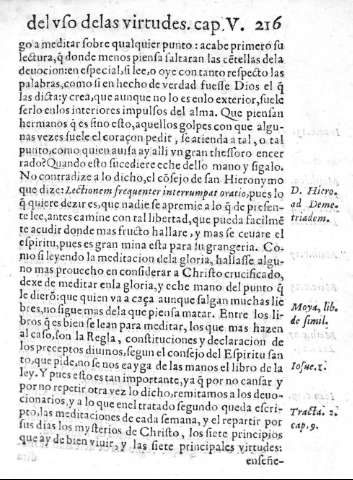 del vso delas virtudes. cap. V. 216
go a meditar sobre qualquier punto: acabe primero su
lectura, q̃ donde menos piensa saltaran las cẽtellas dela
deuocion: en especial, si lee, o oye con tanto respecto las
palabras, como si en hecho de verdad fuesse. Dios el q̃
las dicta: y crea, que aunque no lo es enlo exterior, suele
serlo enlos interiores impulsos del alma. Que piensan
hermanos q̃ es sino esto, aquellos golpes con que algu-
nas vezes suele el coraçon pedir, se atienda a tal, o tal
punto, como quien auisa ay alli vn gran thessoro encer
rado? Quando esto sucediere eche dello mano y sigalo.
No contradize a lo dicho, el cõsejo de san Hieronymo
que dize: Lectionem frequenter interrumpat oratio, pues lo
q̃ quiere dezir es, que nadie se apremie a lo q̃ de presen-
te lee, antes camine con tal libertad, que pueda facilmẽ
te acudir donde mas fructo hallare, y mas se ceuare el
espiritu, pues es gran mina esta para su grangeria. Co-
mo si leyendo la meditacion dela gloria, hallasse algu-
no mas prouecho en considerar a Christo crucificado,
dexe de meditar enla gloria, y eche mano del punto q̃
le dierõ: que quien va a caça aunque salgan muchas lie
bres, no sigue mas dela que piensa matar. Entre los li-
bros q̃ es bien se lean para meditar, los que mas hazen
al caso, son la Regla, constituciones y declaracion de
los preceptos diuinos, segun el consejo del Espiritu san
to, que pide, no se nos eayga de las manos el libro de la
ley. Y pues esto es tan importante, ya q̃ por no cansar y
por no repetir otra vez lo dicho, remitamos a los deuo-
cionarios, y a lo que enel tratado segundo queda escri-
pto, las meditaciones de cada semana, y el repartir por
sus dias los mysterios de Christo, los siete principios
que ay de bien viuir, y las siete principales virtudes:
enseñe-
D. Hiero.
ad Deme-
triadem.
Moya, lib.
de simil.
Iosue. 1.
Tracta. 2.
cap. 9.